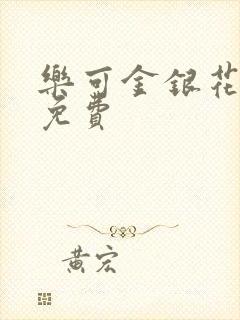 樂可金銀花
免費
黃宏